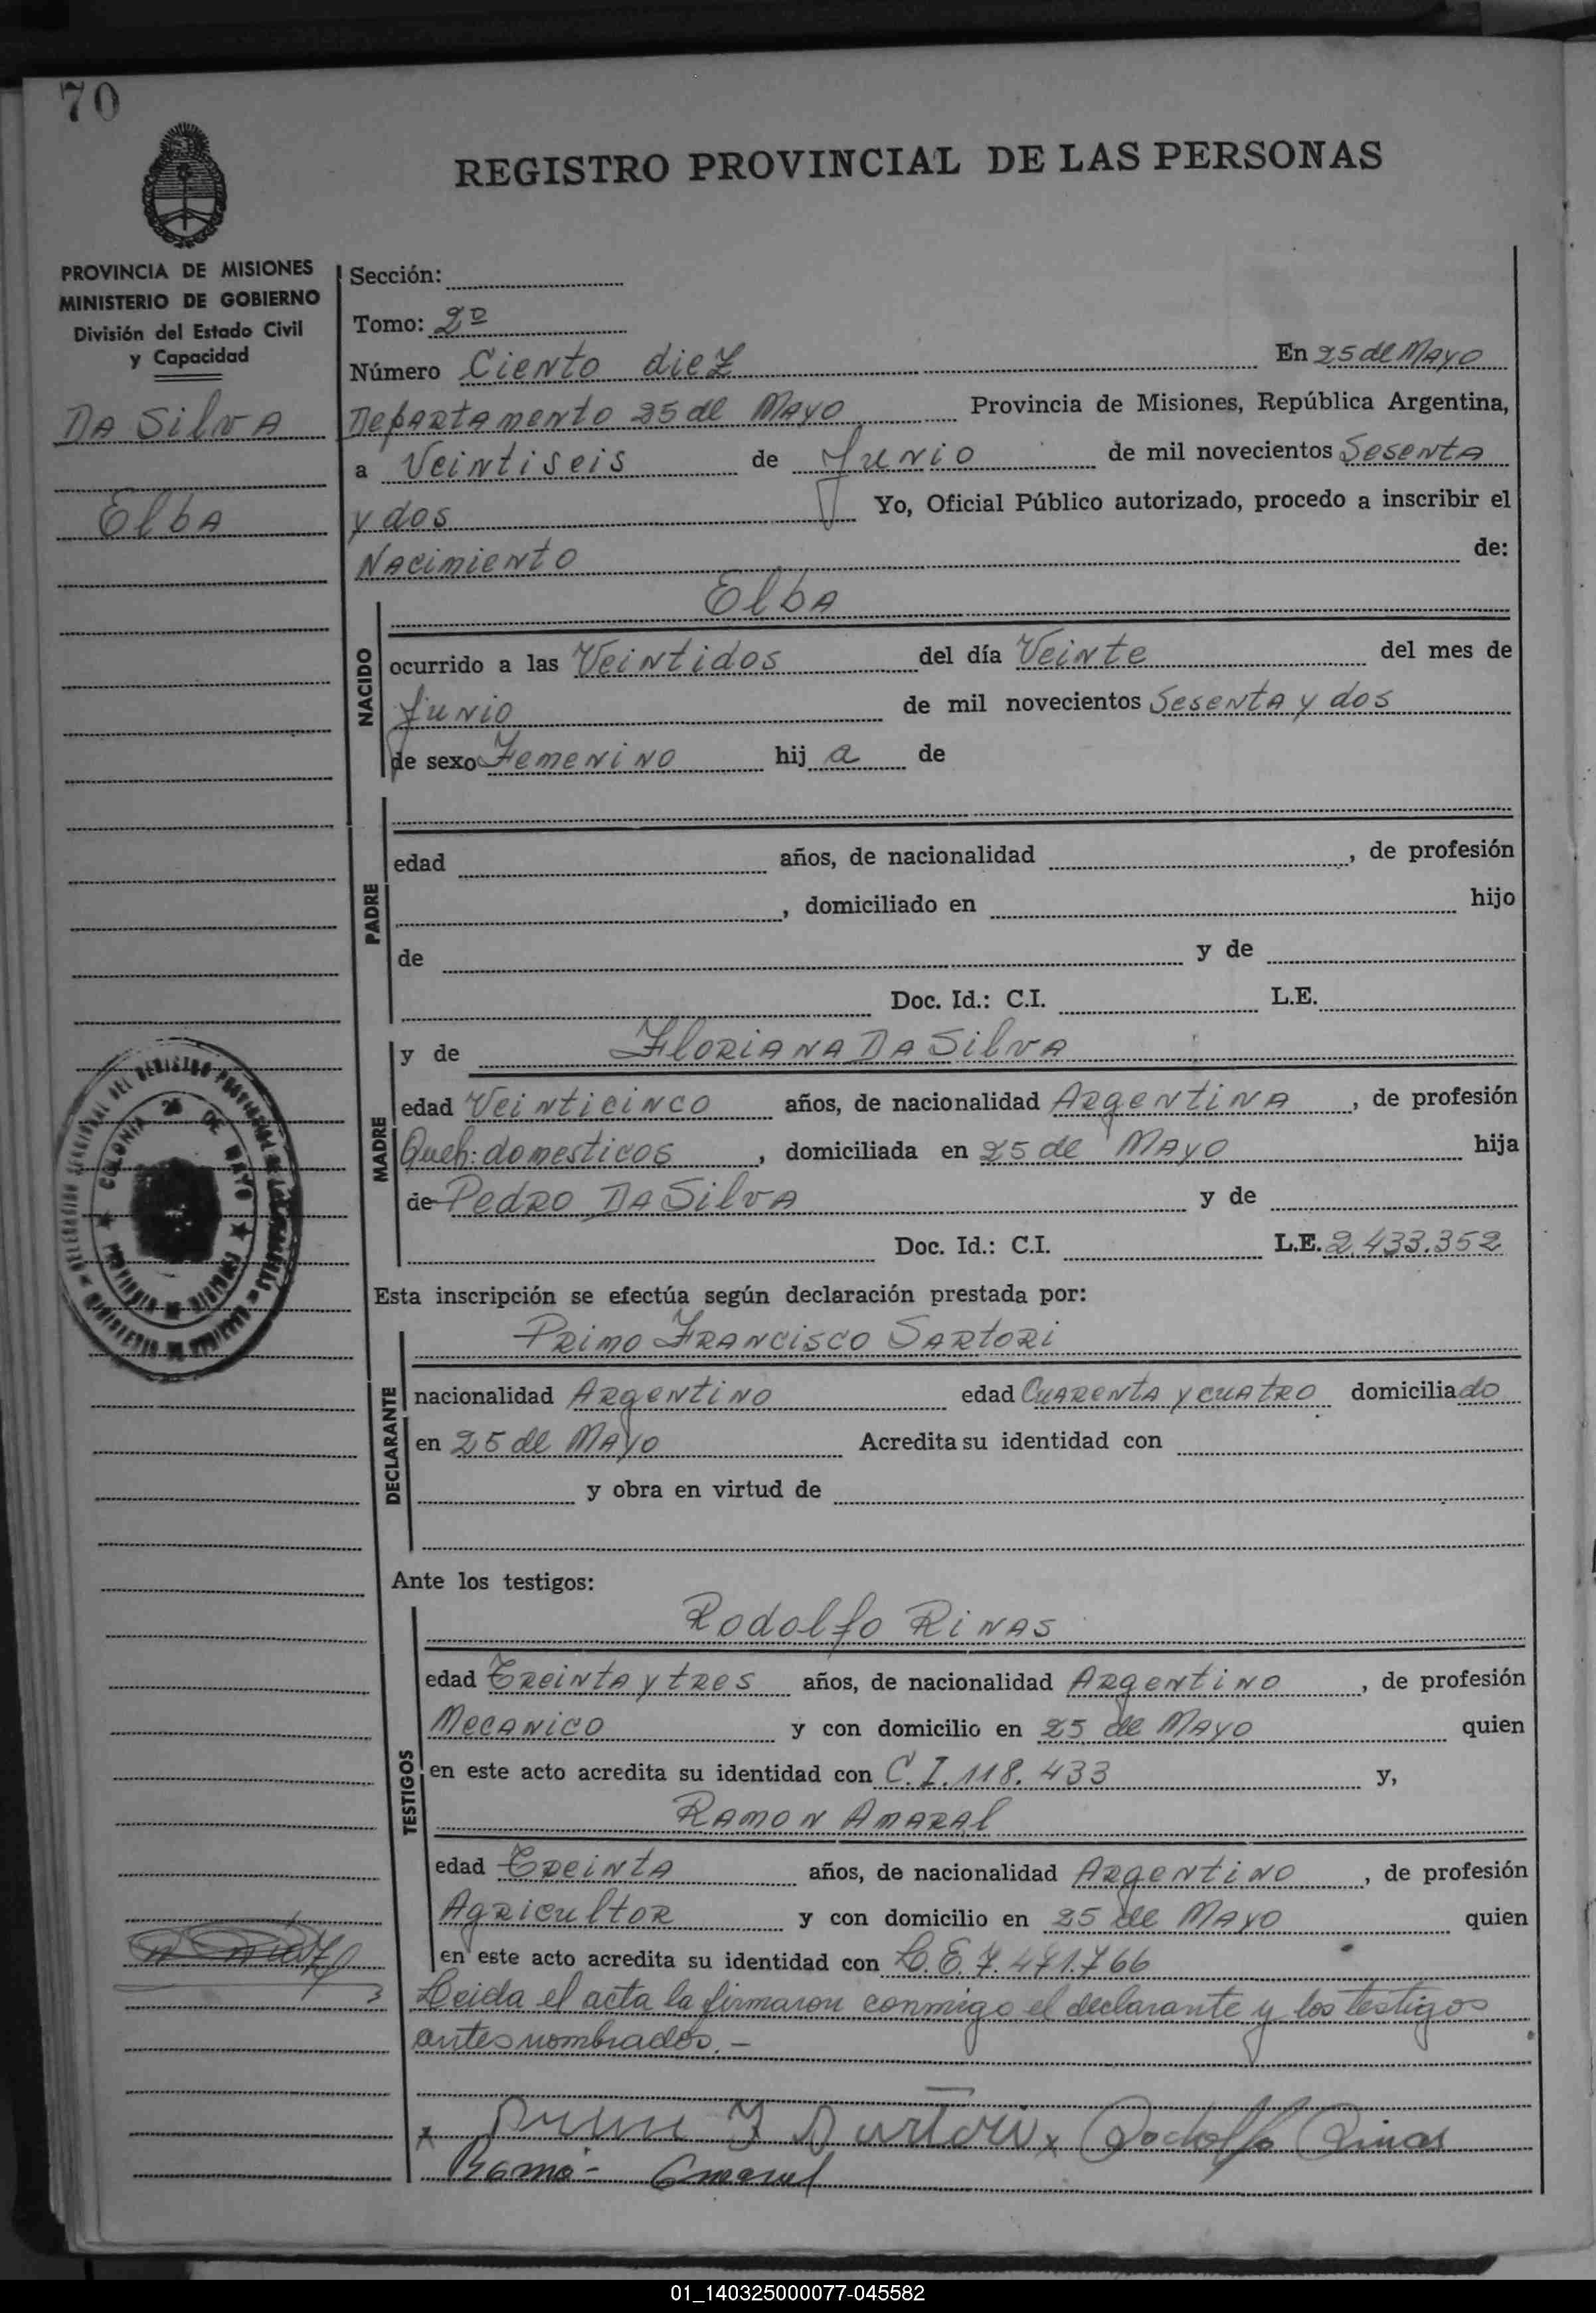 70
REGISTRO PROVINCIAL DE LAS PERSONAS
PROVINCIA DE MISIONES
MINISTERIO DE GOBIERNO
División del Estado Civil
y Capacidad
DA SilvA
ElbA
Sección:
Tomo: 2º
Número Ciento diez En 25 de Mayo
Departamento 25 de Mayo Provincia de Misiones, República Argentina,
a Veintiseis de Junio de mil novecientos Sesenta
y dos Yo, Oficial Público autorizado, procedo a inscribir el
Nacimiento de:
ElbA
NACIDO
ocurrido a las Veintidos del día Veinte del mes de
Junio de mil novecientos Sesenta y dos
de sexo Femenino hij a de
PADRE
edad años, de nacionalidad , de profesión
, domiciliado en hijo
de y de
Doc. Id.: C.I. L.E.
MADRE
y de Floriana Da Silva
edad Veinticinco años, de nacionalidad Argentina , de profesión
Queh: domesticos , domiciliada en 25 de Mayo hija
de Pedro Da Silva y de
Doc. Id.: C.I. L.E. 2.433.352
COLONIA 25 DE MAYO
PROVINCIA DE MISIONES
Esta inscripción se efectúa según declaración prestada por:
DECLARANTE
Primo Francisco Sartori
nacionalidad Argentino edad Cuarenta y cuatro domiciliado
en 25 de Mayo Acredita su identidad con
y obra en virtud de
Ante los testigos:
TESTIGOS
Rodolfo Rinas
edad Treinta y tres años, de nacionalidad Argentino , de profesión
Mecanico y con domicilio en 25 de Mayo quien
en este acto acredita su identidad con C.I. 118.433 y,
Ramon Amaral
edad Treinta años, de nacionalidad Argentino , de profesión
Agricultor y con domicilio en 25 de Mayo quien
en este acto acredita su identidad con L.E. 7.471.766
Leida el acta la firmaron conmigo el declarante y los testigos
antes nombrados.-
x Primo F Sartori x Rodolfo Rinas
Ramo- Amaral
01_140325000077-045582